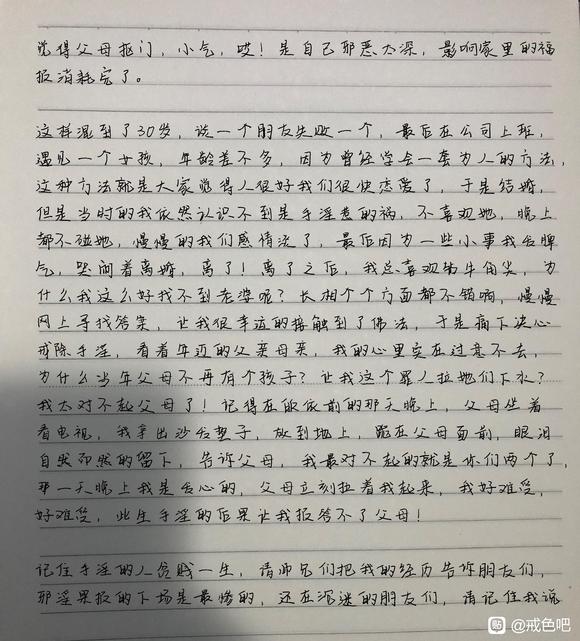 觉得父母抠门，小气，哎！是自己邪恶太深，影响家里的福
报消耗完了。
这样混到了30岁，谈一个朋友失败一个，最后在公司上班，
遇见一个女孩，年龄差不多，因为曾经学会一套为人的方法，
这种方法就是大家觉得人很好我们很快恋爱了，于是结婚，
但是当时的我依然认识不到是手淫惹的祸，不喜观她，晚上
都不碰她，慢慢的我们感情淡了，最后因为一些小事我发脾
气，哭闹着离婚，离了！离了之后，我总喜观钻牛角尖，为
什么我这么好找不到老婆呢？长相个个方面都不错啊，慢慢
网上寻找答案，让我很幸运的接触到了佛法，于是痛下决心
戒除手淫，看着年迈的父亲母亲，我的心里实在过意不去，
为什么当年父母不再有个孩子？让我这个罪人拉她们下水？
我太对不起父母了！记得在皈依前的那天晚上，父母坐着
看电视，我拿出沙发垫子，放到地上，跪在父母面前，眼泪
自然而然的留下，告诉父母，我最对不起的就是你们两个了，
那一天晚上我是发心的，父母立刻拉着我起来，我好难受，
好难受，此生手淫的后果让我报答不了父母！
记住手淫的人贫贱一生，请师兄们把我的经历告诉朋友们，
邪淫果报的下场是最惨的，还在沉迷的朋友们，请记住我说
贴 @戒色吧